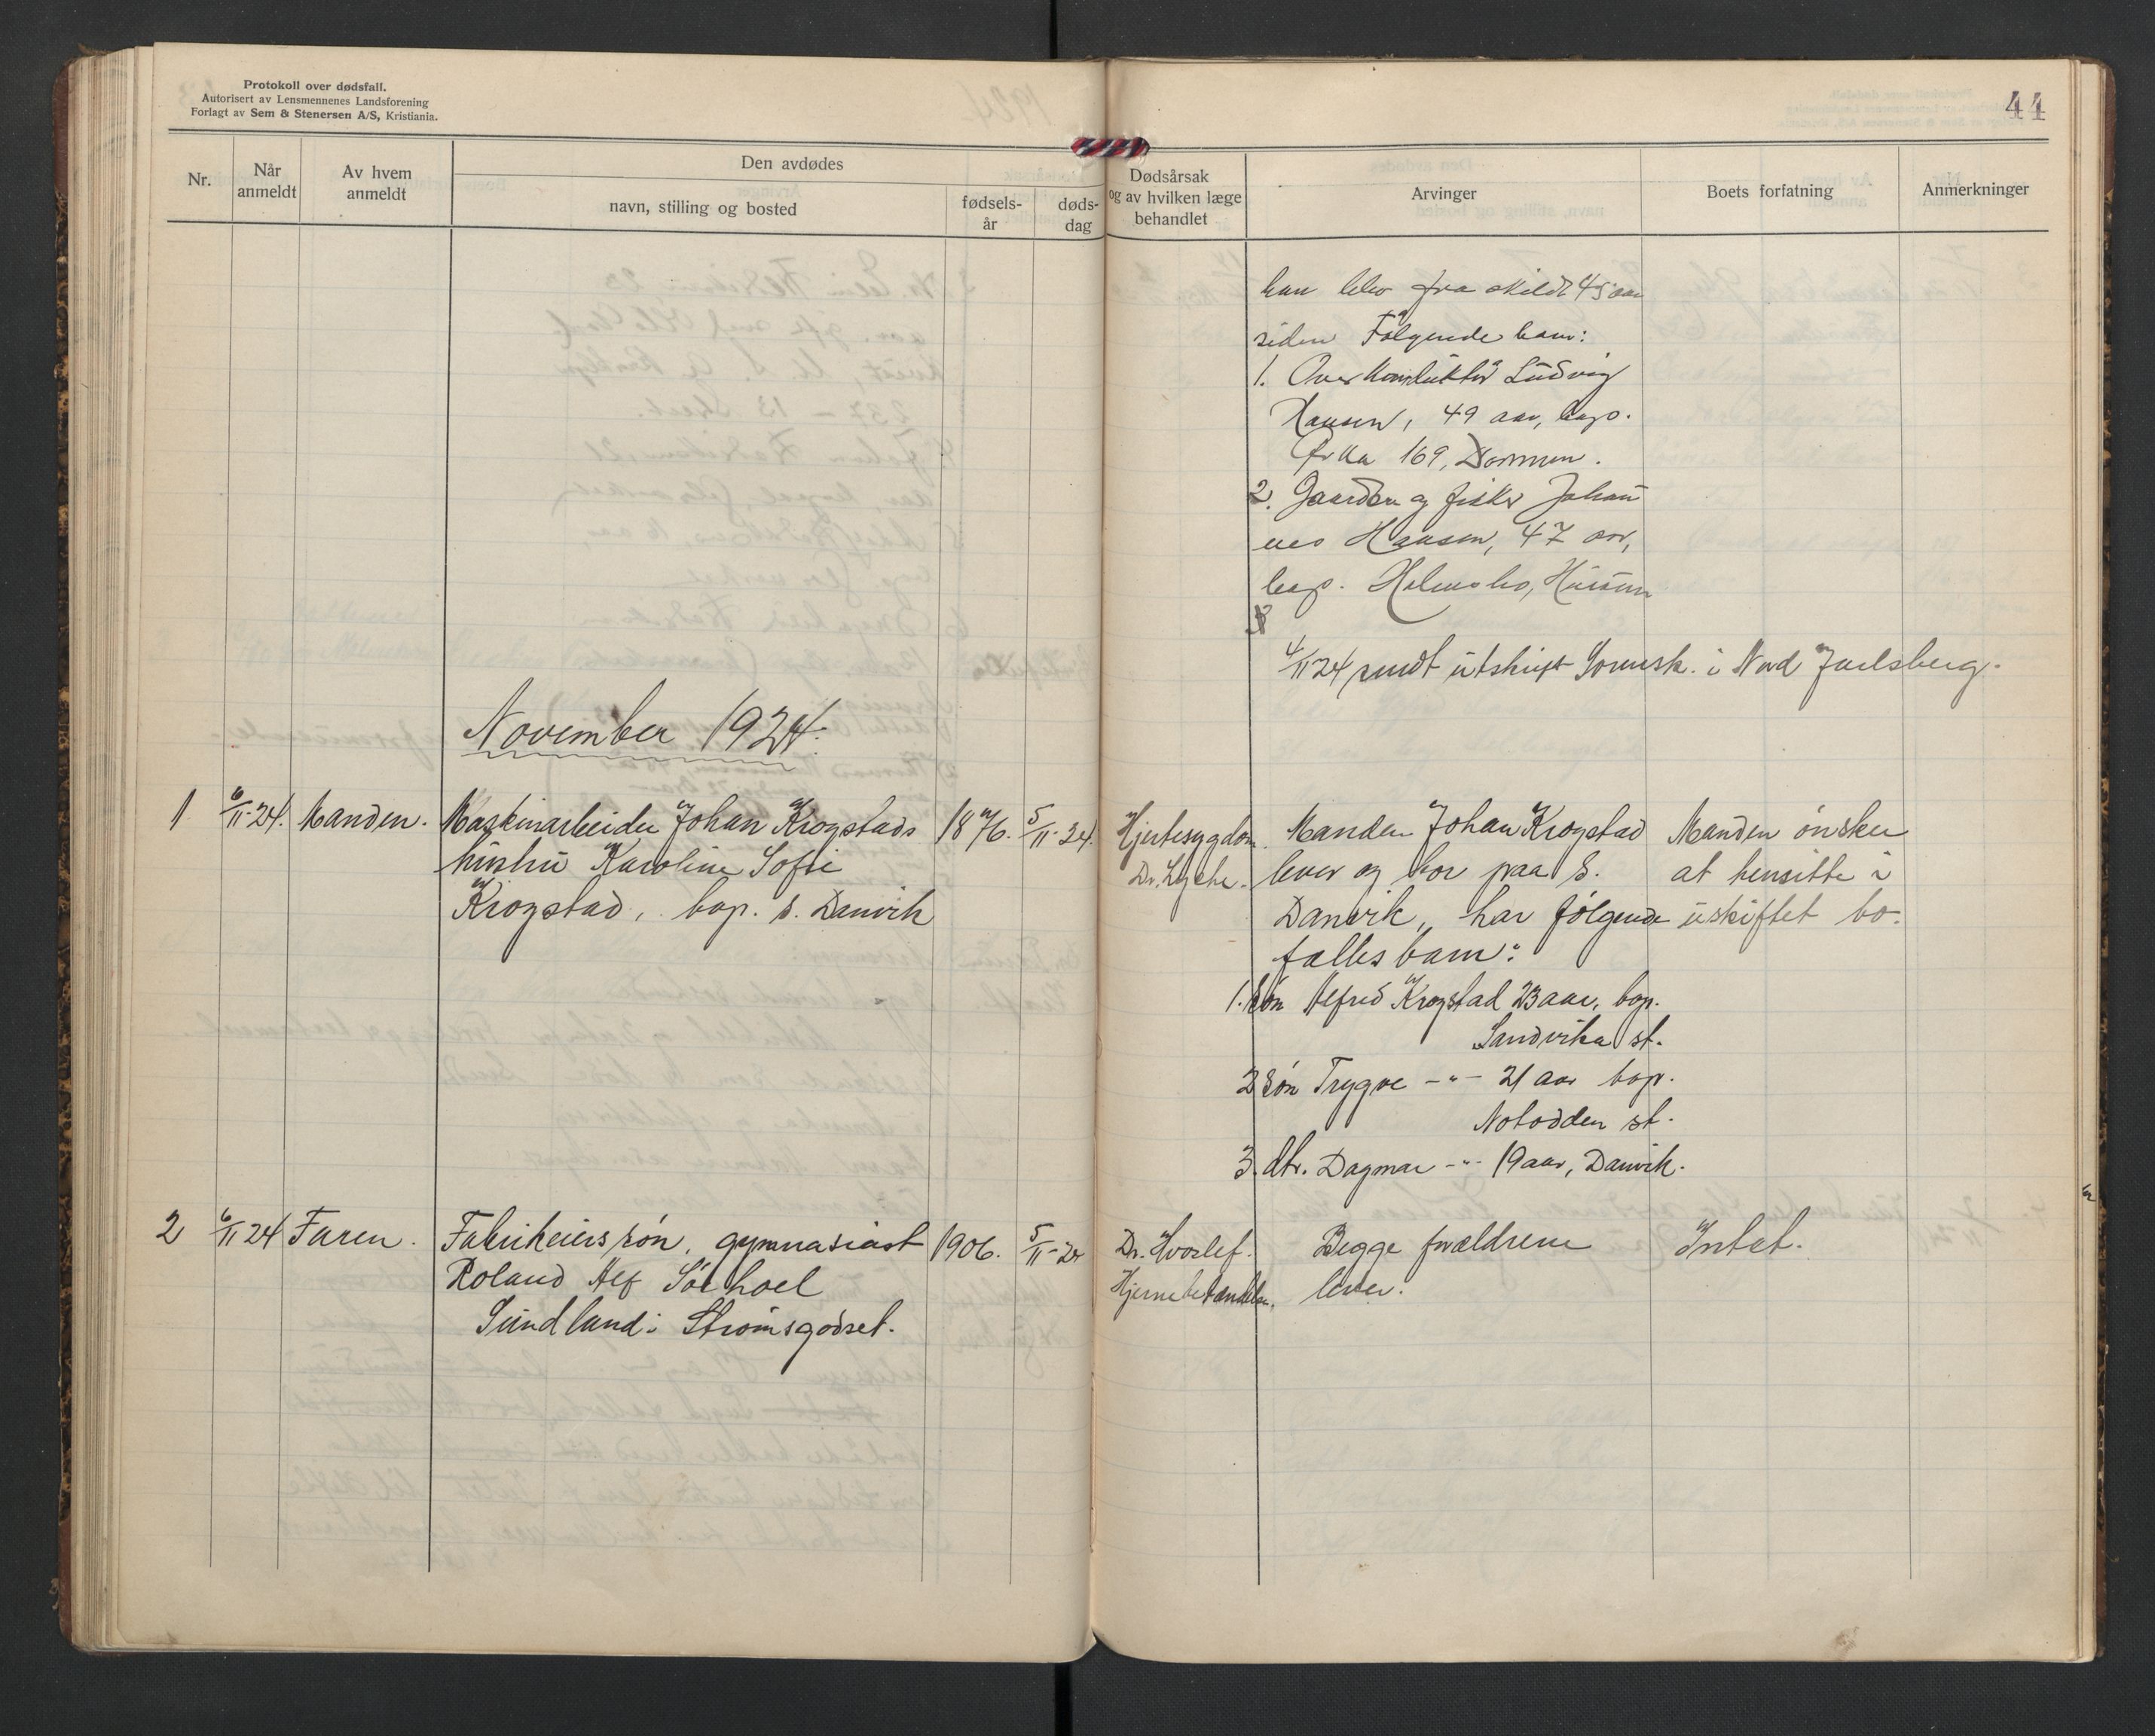 Protokoll over dødsfall.
Autorisert av Lensmennenes Landsforening
Forlagt av Sem & Stenersen A/S, Kristiania.
44
Nr.
Når anmeldt
Av hvem anmeldt
Den avdødes
navn, stilling og bosted
fødsels-år
døds-dag
Dødsårsak og av hvilken læge behandlet
Arvinger
Boets forfatning
Anmerkninger
han blev fra skildt 45 aar
siden Følgende barn:
1. Overkonduktør Ludvig
Hansen, 49 aar, bop.
169, Drammen.
2. Gaardbr. og fisker Johan
nes Hansen, 47 aar,
bop. Holmsbo, Hurum
4/11 24 sendt utskrift Sorensk. i Nord Jarlsberg.
November 1924.
1 6/11-24. Manden. Maskinarbeider Johan Krogstads 1876. 5/11-24. Hjertesygdom. Manden Johan Krogstad Manden ønsker
hustru Karoline Sofie Dr. Lyche. lever og bor paa S. at hensitte i
Krogstad, bop. S. Danvik Danvik, har følgende uskiftet bo.
fælles barn:
1. Søn Alfred Krogstad 23 aar, bop.
Sandvika st.
2 Søn Trygve -"- 21 aar bop.
Notodden st.
3. dtr. Dagmar -"- 19 aar, Danvik.
2 6/11 24 Faren. Fabrikeiers søn, gymnasiast 1906. 5/11-24 Dr. Hvoslef. Begge forældrene Intet.
Roland Alf Sørhoel Hjernebetændelse. lever.
Sundland i Strømsgodset.